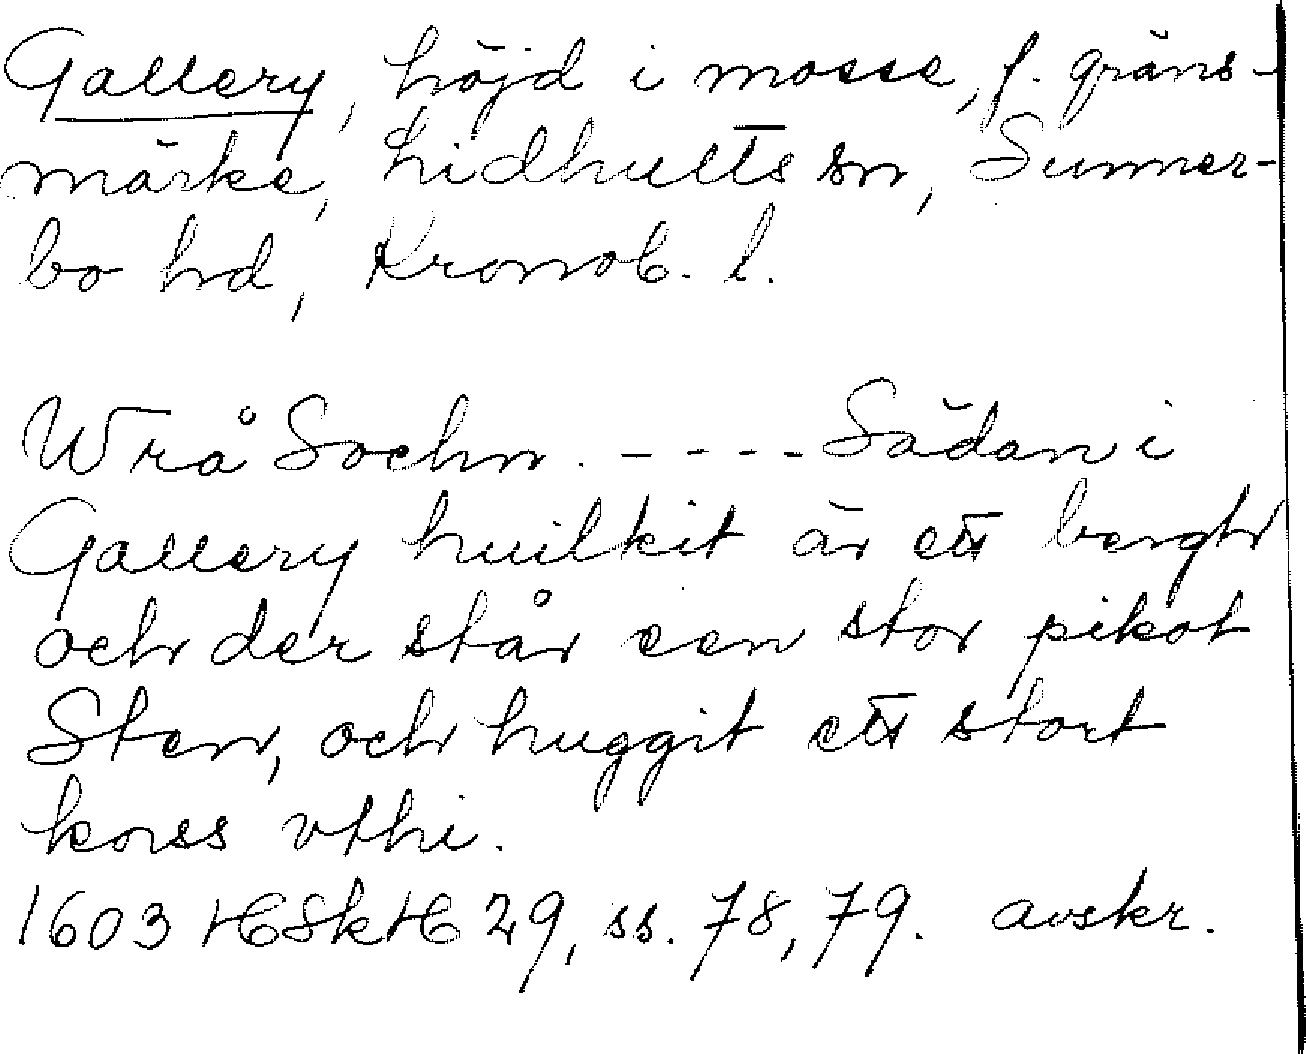 Gallery, höjd i mosse, f. gräns-
märke, Lidhults sn, Sunner-
bo hd, Kronob. l.
Wrå Sochn. ---- Sädan i
Gallery huilkit är ett bergh
och der står een stor pikot
Sten, och huggit ett stort
korss vthi.
1603 HSkH 29, ss. 78, 79. avskr.